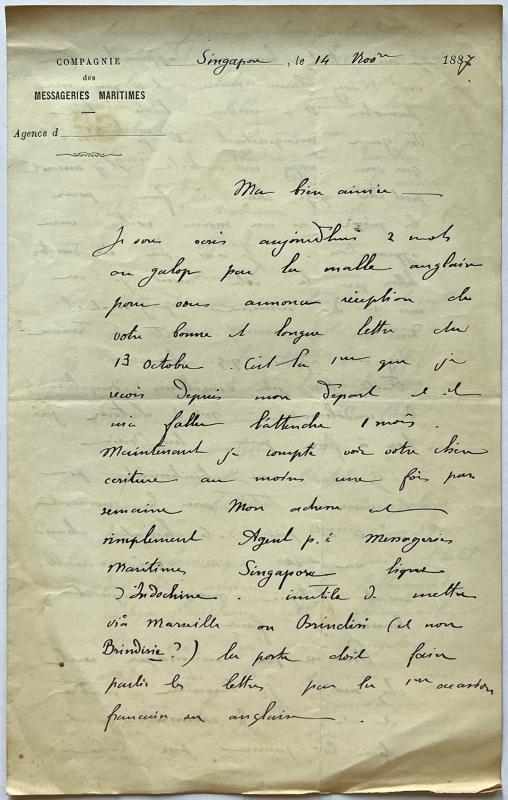 COMPAGNIE
des
MESSAGERIES MARITIMES
Agence d
Singapore, le 14 Nov 1887
Ma bien aimée
Je vous écris aujourd'hui 2 mots
au galop par la malle anglaise
pour vous annoncer réception de
votre bonne et longue lettre du
13 octobre. C'est la 1ère que je
reçois depuis mon départ et il
m'a fallu l'attendre 1 mois.
Maintenant je compte voir votre chère
écriture au moins une fois par
semaine Mon adresse est
simplement Agent p. i Messageries
Maritimes Singapore ligne
d'Indochine. inutile de mettre
viâ Marseille ou Brindisi (et non
Brindisie?) la poste doit faire
partir les lettres par la 1ère occasion
française ou anglaise.